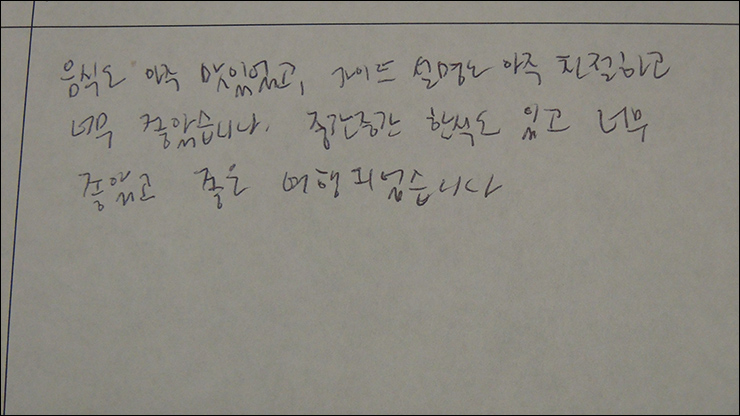 음식도 아주 맛있었고, 가이드 설명도 아주 친절하고
너무 좋았습니다. 중간중간 한식도 있고 너무
좋았고 좋은 여행되었습니다